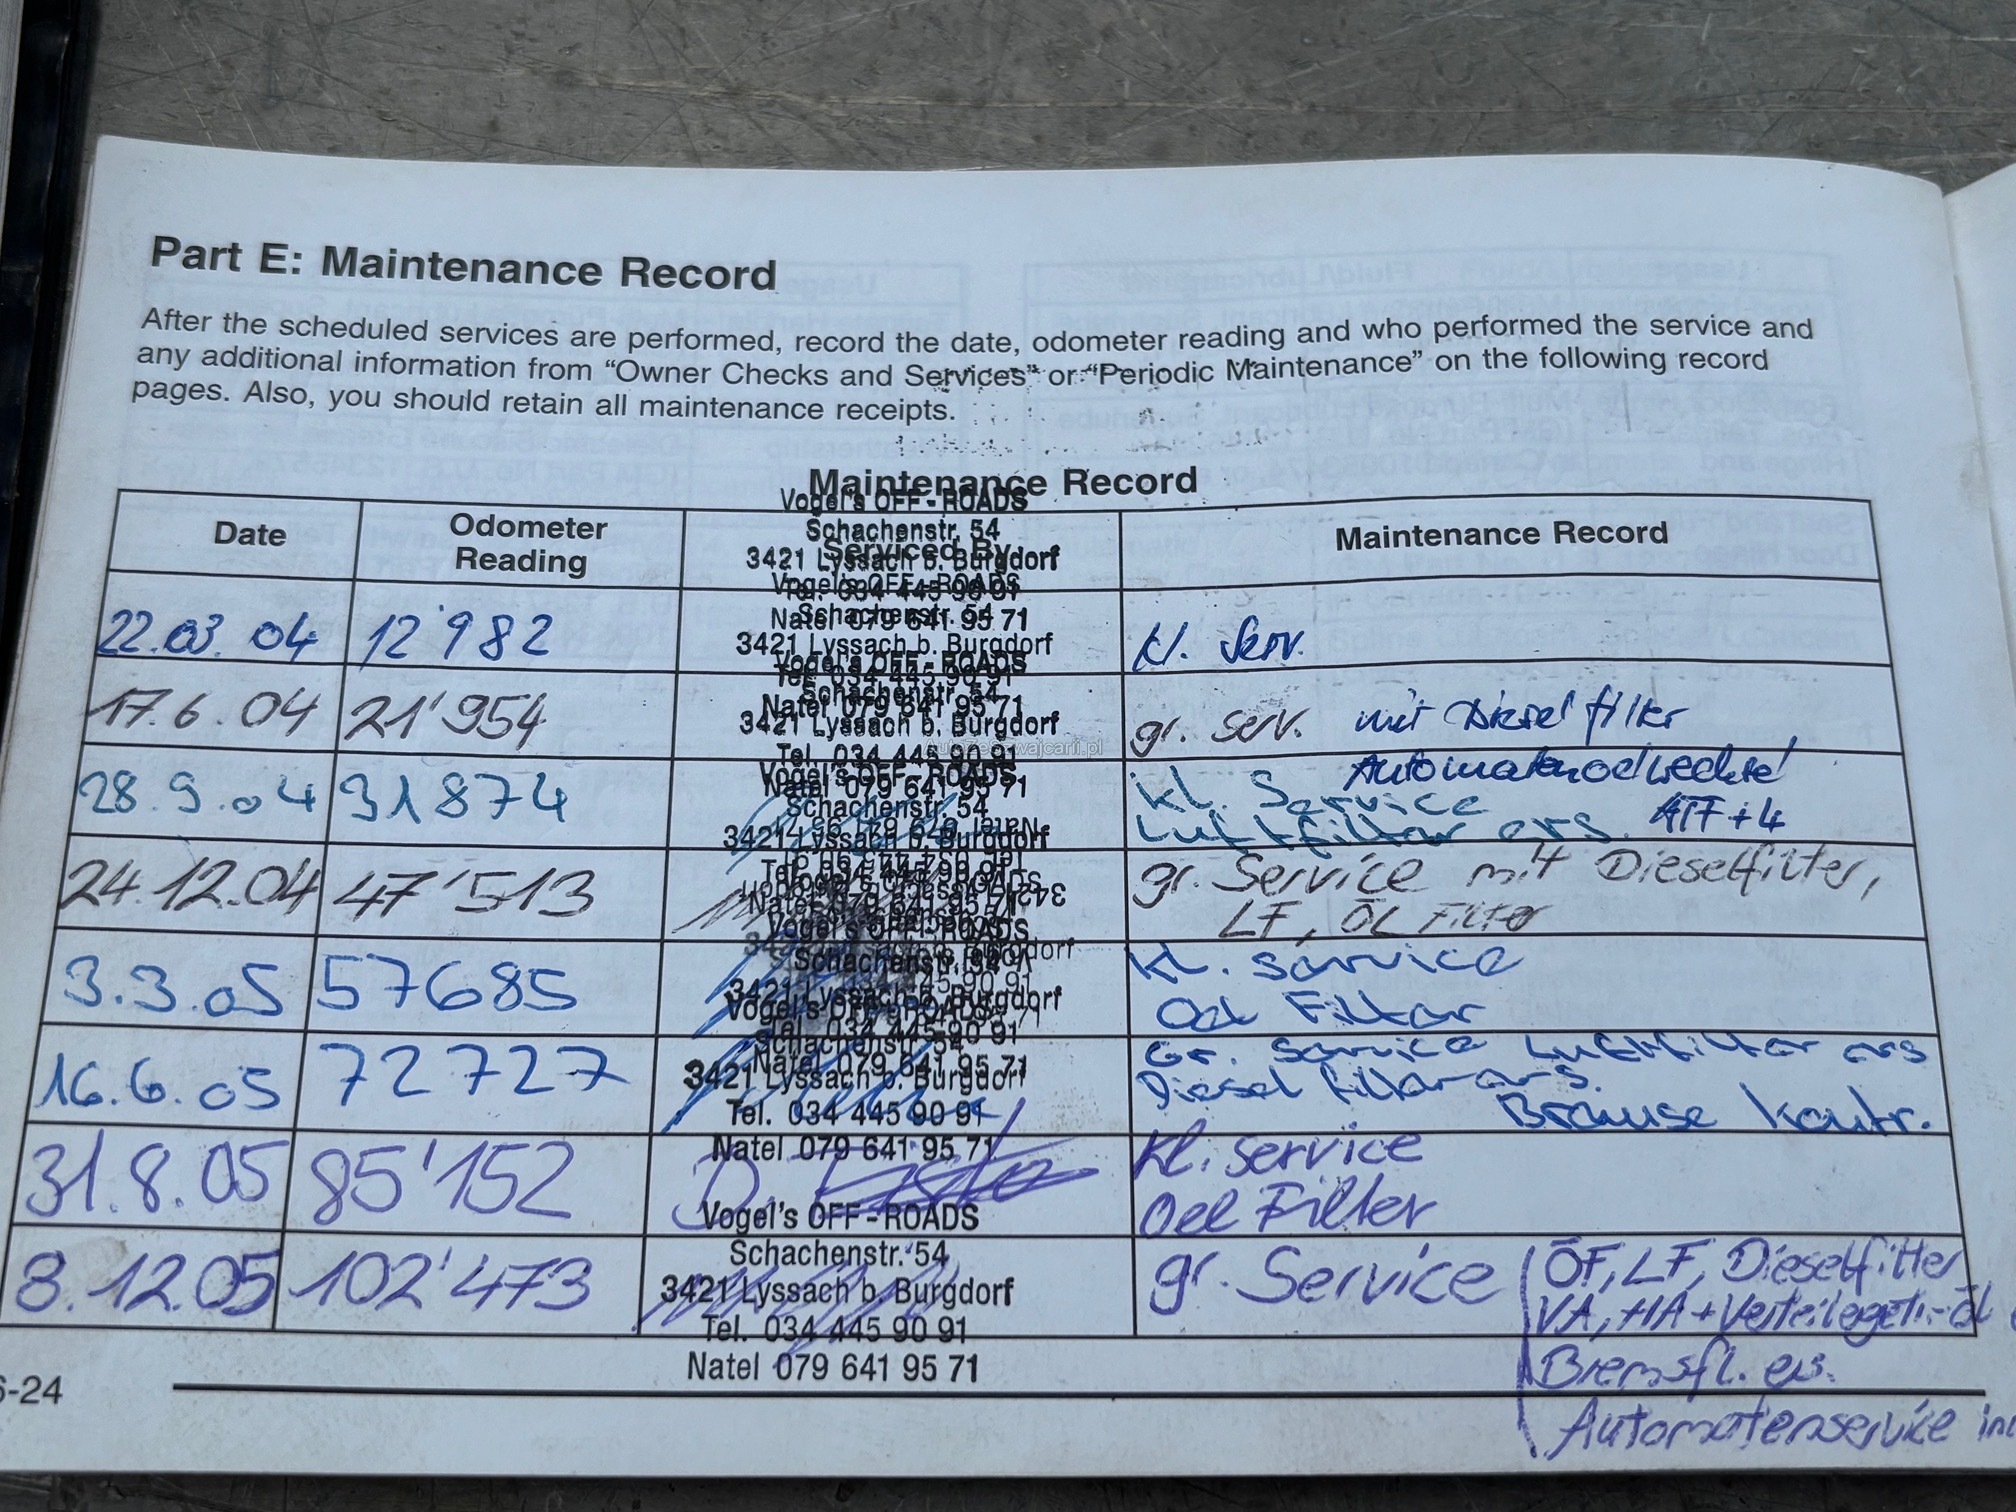 Part E: Maintenance Record
After the scheduled services are performed, record the date, odometer reading and who performed the service and
any additional information from “Owner Checks and Services” or “Periodic Maintenance” on the following record
pages. Also, you should retain all maintenance receipts.
Maintenance Record
Date
Odometer
Reading
Serviced By
Maintenance Record
Vogel's OFF - ROADS
Schachenstr. 54
3421 Lyssach b. Burgdorf
Tel. 034 445 90 91
Natel 079 641 95 71
22.03.04 12'982
Vogel's OFF - ROADS
Schachenstr. 54
3421 Lyssach b. Burgdorf
Tel. 034 445 90 91
Natel 079 641 95 71
kl. Serv.
17.6.04 21'954
Vogel's OFF - ROADS
Schachenstr. 54
3421 Lyssach b. Burgdorf
Tel. 034 445 90 91
Natel 079 641 95 71
gr. serv. mit Diesel filter
Automatenoelwechsel
ATF+4
AutoZeSzwajcarii.pl
28.9.04 31874
Vogel's OFF - ROADS
Schachenstr. 54
3421 Lyssach b. Burgdorf
kl. Service
Luftfilter ers.
24.12.04 47'513
gr. Service mit Dieselfilter,
LF, ÖL Filter
3.3.05 57685
Vogel's OFF - ROADS
Schachenstr. 54
3421 Lyssach b. Burgdorf
Tel. 034 445 90 91
Natel 079 641 95 71
kl. service
Oel Filter
16.6.05 72727
Vogel's OFF - ROADS
Schachenstr. 54
3421 Lyssach b. Burgdorf
Tel. 034 445 90 91
Natel 079 641 95 71
Gr. Service Luftfilter ers
Diesel filter ers.
Bremse kontr.
31.8.05 85'152
kl. service
Oel Filter
8.12.05 102'473
Vogel's OFF - ROADS
Schachenstr. 54
3421 Lyssach b. Burgdorf
Tel. 034 445 90 91
Natel 079 641 95 71
gr. Service
ÖF, LF, Dieselfilter
VA, HA + Verteilergetr.-öl
Bremsfl. ers.
Automatenservice
6-24